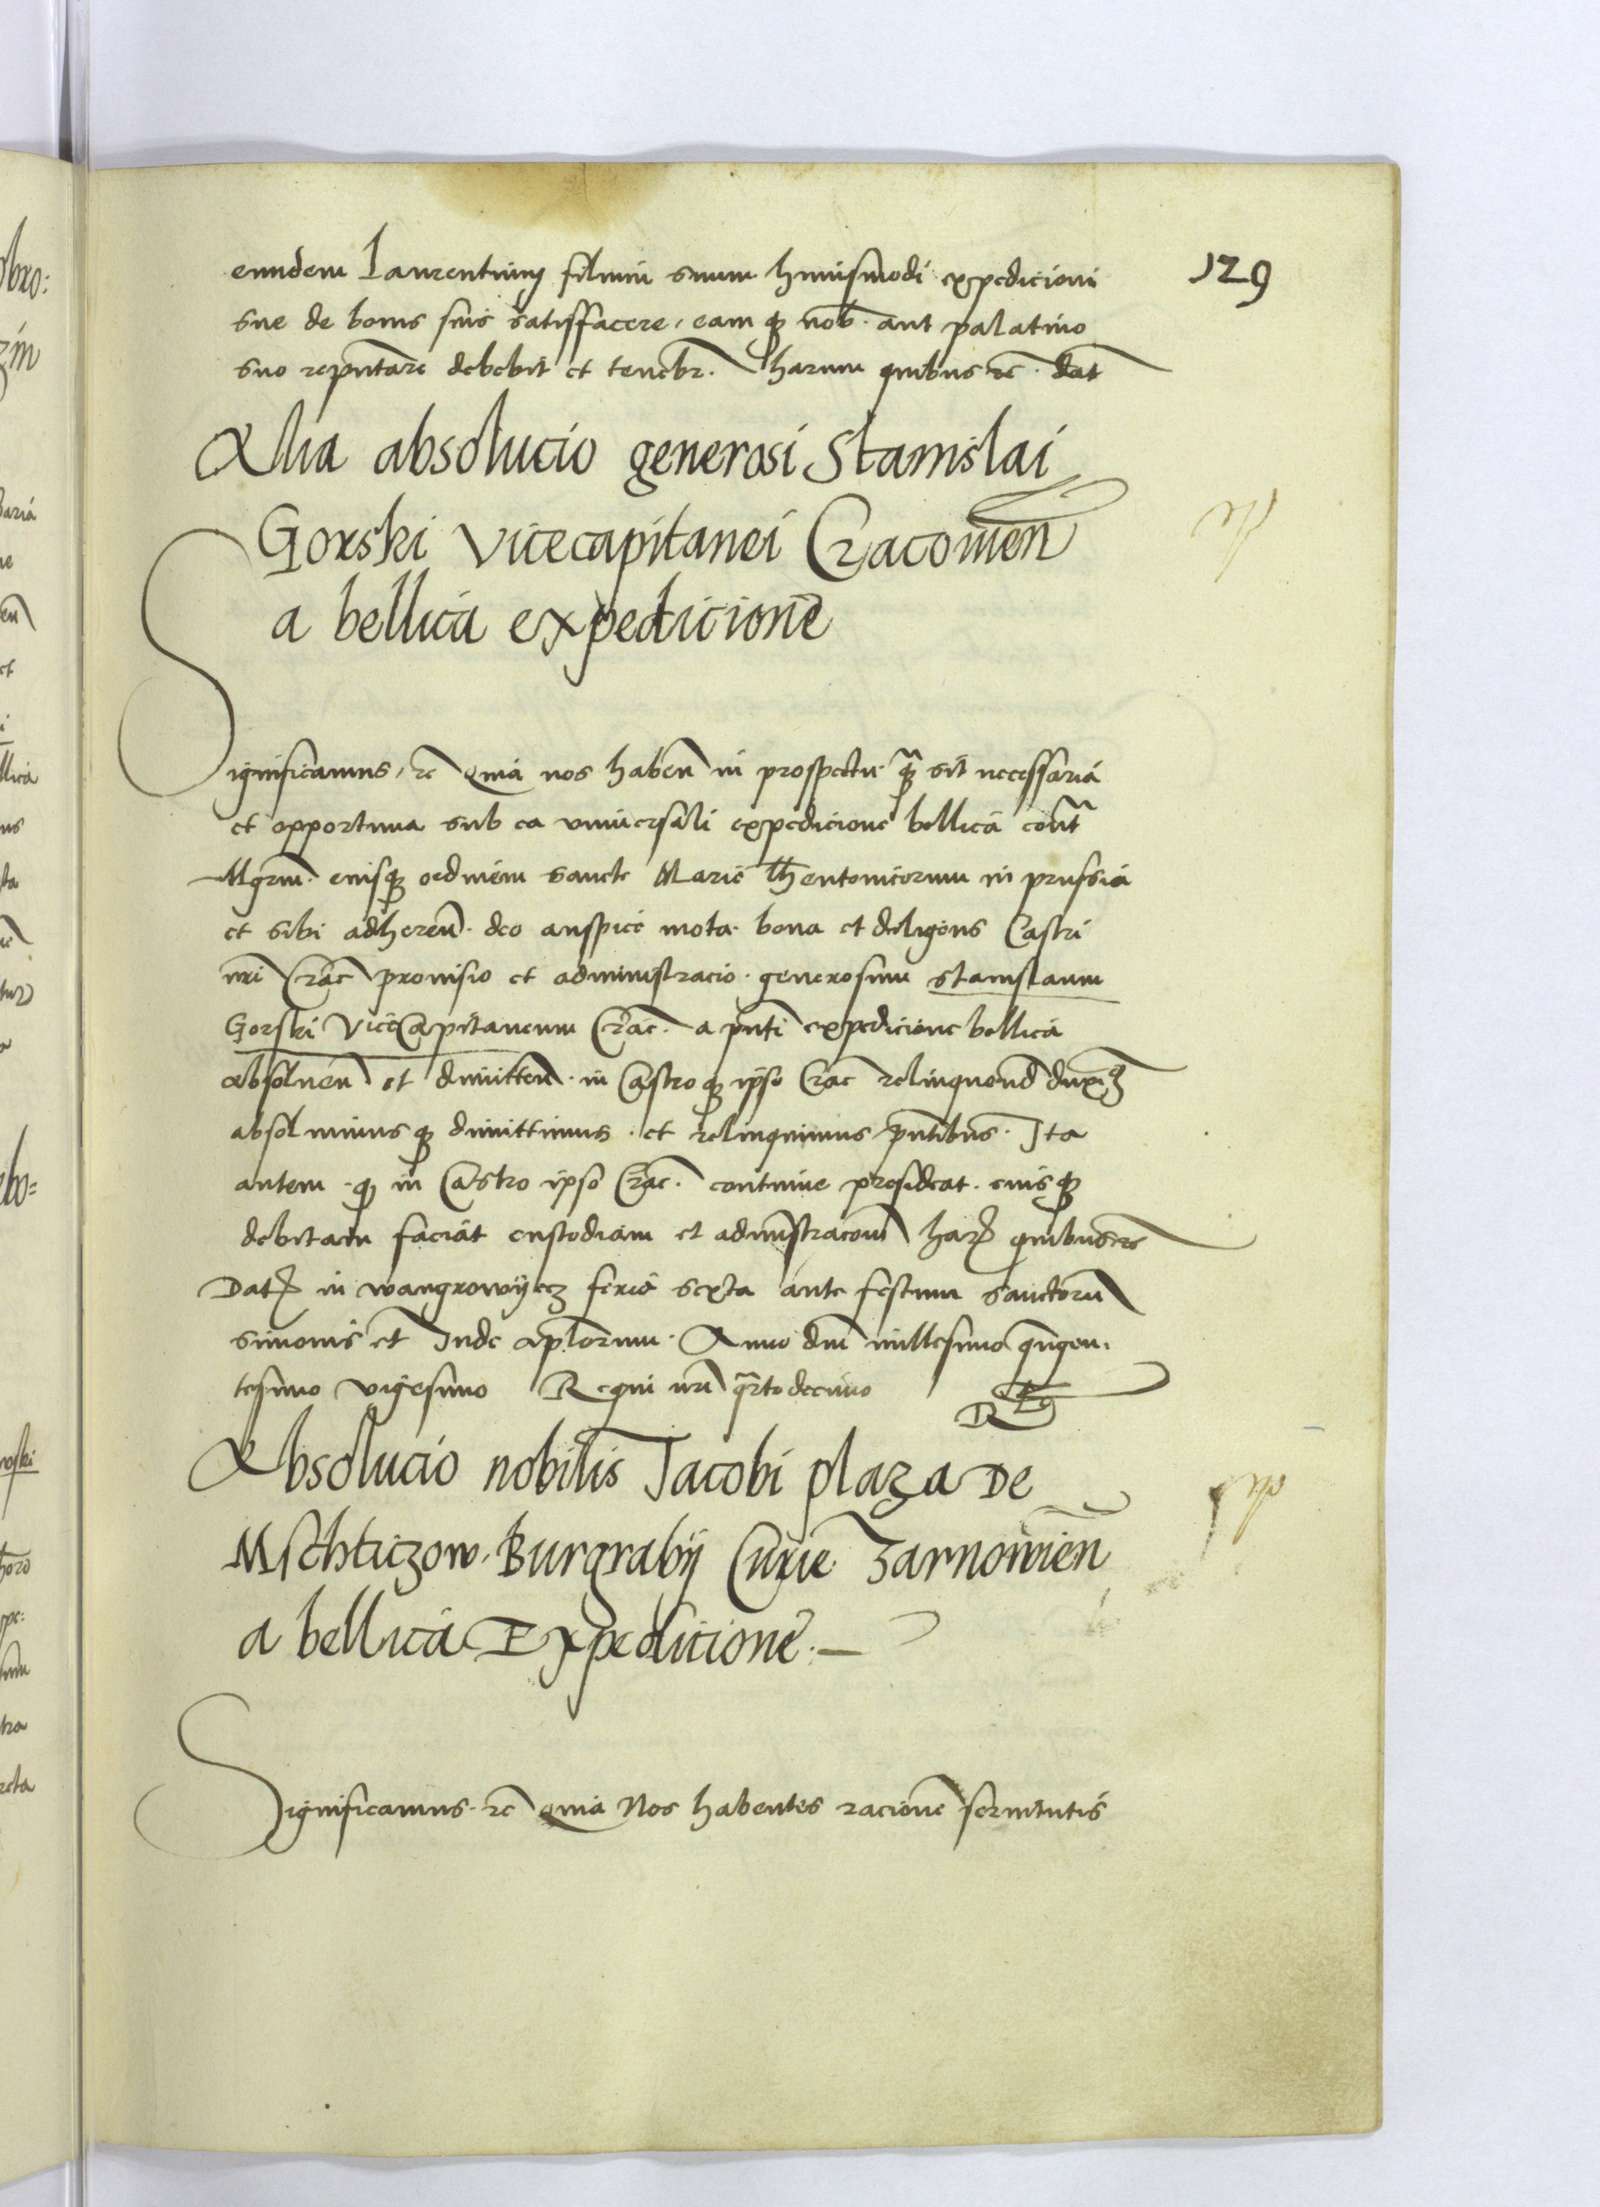 129
eundem Laurentium filium suum huiusmodi expedicioni
sue de bonis suis satisffacere, eam q nob. aut palatino
suo reputare debebit et tenebr. harum quibus rc. dat
Alia absolucio generosi Stanislai
Gorski vicecapitanei Cracovien
a bellica expedicione
Significamus, rc quia nos haben in prospectu. q sit necessaria
et opportuna sub ea universali expedicione bellica contra
Mgrm. eiusq ordinem sancte Marie Thentonicorum in prussia
et sibi adheren. deo auspice mota. bona et diligens Castri
nri Crac provisio et administracio. generosum stanislaum
Gorski ViceCapitaneum Crac. a pnti expedicione bellica
absoluen et dimitten. in Castro q ipso Crac relinquend duxim9
absoluimus q dimittimus. et relinquimus pntibus. Ita
autem. q in Castro ipso Crac. continue presideat. eiusq
debitam faciat custodiam et administracom har quibus rc
Dat in wangrowyecz feria sexta ante festum sanctorum
simonis et Jude aplorum. Anno dni millesimo quingen.
tesimo vigesimo Regni nri quartodecimo
Absolucio nobilis Jacobi plaza De
Mschticzow. Burgrabij Curie Zarnowien
a bellica Expedicione. —
Significamus. rc quia Nos habentes racione servitutis